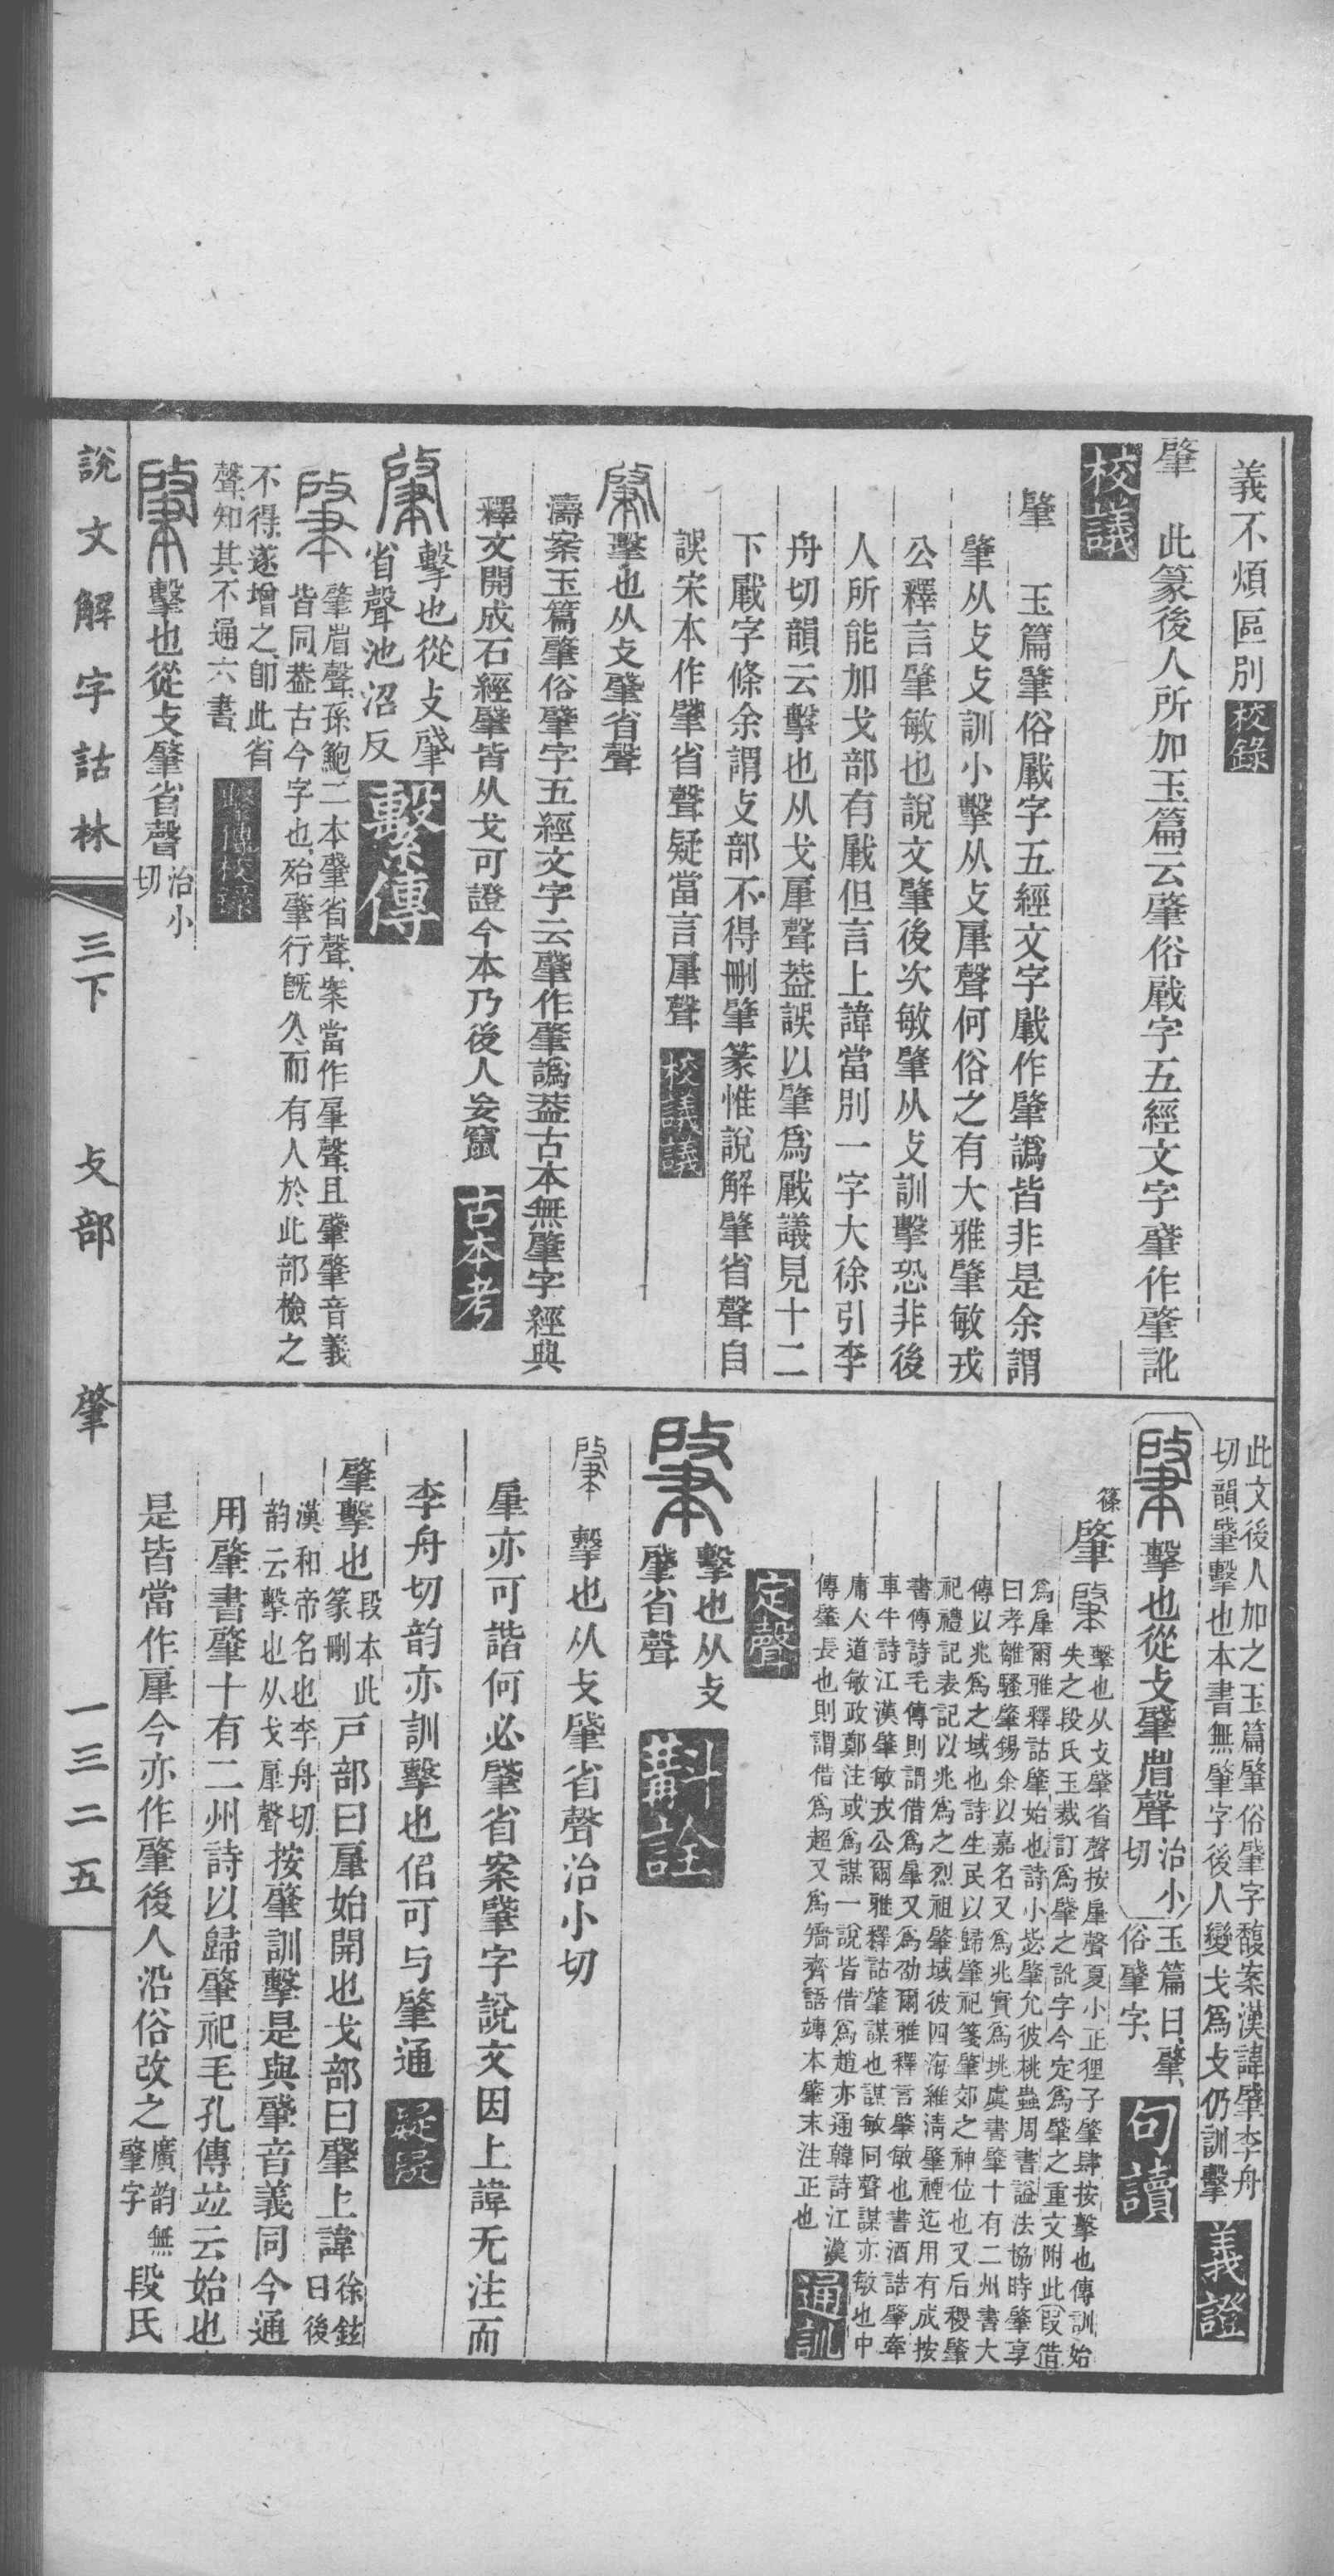 義不煩區別 校錄
肈 此篆後人所加玉篇云肈俗肁字五經文字肈作肇訛
校議
肇 玉篇肇俗肁字五經文字肁作肇譌皆非是余謂
肈从攴攴訓小擊从攴肁聲何俗之有大雅肇敏戎
公釋言肇敏也說文肇後次敏肇从攴訓擊恐非後
人所能加戈部有肁但言上諱當別一字大徐引李
舟切韻云擊也从戈肁聲葢誤以肇爲肁議見十二
下肁字條余謂攴部不得刪肇篆惟說解肇省聲自
誤宋本作肈省聲疑當言肁聲 校議議
擊也从攴肈省聲
濤案玉篇肇俗肈字五經文字云肈作肇譌葢古本無肇字經典
釋文開成石經肈皆从戈可證今本乃後人妄竄 古本考
擊也從攴肈
省聲池沼反 繫傳
肈省聲孫鮑二本肈省聲案當作肁聲且肈肇音義
皆同葢古今字也殆肇行旣久而有人於此部檢之
不得遂增之卽此省
聲知其不通六書
擊也從攴肈省聲 治小
切
說文解字詁林 三下 攴部 肇 一三二五
此文後人加之玉篇肇俗肈字馥案漢諱肈李舟
切韻肈擊也本書無肇字後人變戈爲攴仍訓擊 義證
擊也從攴肈省聲 治小
切 玉篇曰肇
俗肈字 句讀
肇 擊也从攴肈省聲按肁聲夏小正狸子肇肆按擊也傳訓始
失之段氏玉裁訂爲肈之訛字今定爲肈之重文附此叚借
爲肁爾雅釋詁肇始也詩小毖肇允彼桃蟲周書謚法協時肇享
曰孝離騷肇錫余以嘉名又爲兆實爲垗虞書肇十有二州書大
傳以兆爲之域也詩生民以歸肇祀箋肇郊之神位也又后稷肇
祀禮記表記以兆爲之烈祖肇域彼四海維淸肇禋迄用有成按
書傳詩毛傳則謂借爲肁又爲劭爾雅釋言肇敏也書酒誥肇牽
車牛詩江漢肇敏戎公爾雅釋詁肇謀也謀敏同聲謀亦敏也中
庸人道敏政鄭注或爲謀一說皆借爲趙亦通韓詩江漢
傳肇長也則謂借爲超又爲矯齊語竱本肇末注正也 通訓
定聲
擊也从攴
肈省聲 斠詮
擊也从攴肈省聲治小切
肁亦可諧何必肈省案肈字說文因上諱无注而
李舟切韵亦訓擊也佀可与肇通 疑疑
肇擊也 段本此
篆刪 戸部曰肁始開也戈部曰肈上諱 徐鉉
曰後
漢和帝名也李舟切
韵云擊也从戈肁聲 按肇訓擊是與肈音義同今通
用肇書肇十有二州詩以歸肇祀毛孔傳竝云始也
是皆當作肁今亦作肇後人沿俗改之 廣韵無
肈字 段氏